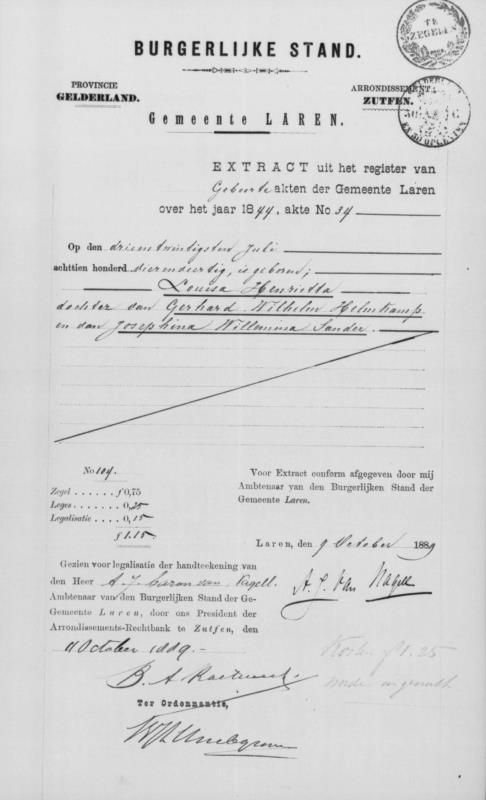 TE
ZEGELEN
BURGERLIJKE STAND.
PROVINCIE
GELDERLAND.
ARRONDISSEMENT
ZUTFEN.
Gemeente LAREN.
EXTRACT uit het register van
Geboorte akten der Gemeente Laren
over het jaar 1844, akte No 34
Op den drieentwintigsten Juli
achttien honderd vierenveertig, is geboren;
Louisa Henrietta
dochter van Gerhard Wilhelm Helmkamp
en van Josephina Willemina Sander.
No 104.
Zegel . . . . . . f 0,75
Leges . . . . . . 0,25
Legalisatie . . . 0,15
f 1.15
Voor Extract conform afgegeven door mij
Ambtenaar van den Burgerlijken Stand der
Gemeente Laren.
Laren, den 9 October 1889
A. J. Van Nagell
Gezien voor legalisatie der handteekening van
den Heer A. J. baron van Nagell
Ambtenaar van den Burgerlijken Stand der Ge-
Gemeente Laren, door ons President der
Arrondissements-Rechtbank te Zutfen, den
11 October 1889.-
Kosten f 1.25
B. A.
Ter Ordonnantie,